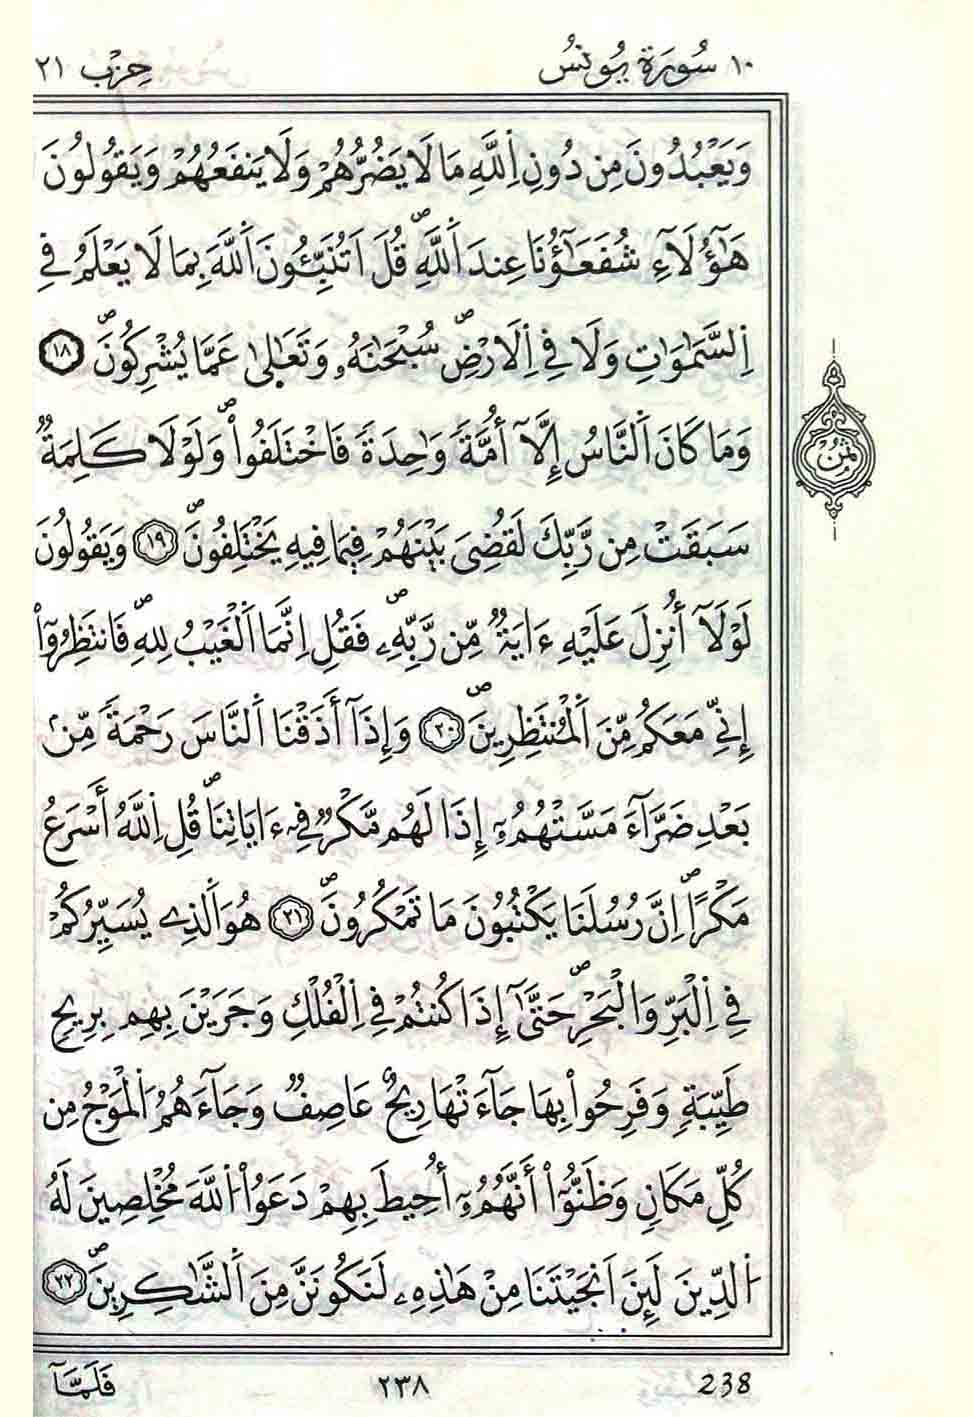 ١٠ سُورَة يُونُس
حِزْب ٢١
وَيَعْبُدُونَ مِن دُونِ اِ۬للَّهِ مَا لَا يَضُرُّهُمْ وَلَا يَنفَعُهُمْ وَيَقُولُونَ
هَٰٓؤُلَآءِ شُفَعَٰٓؤُنَا عِندَ اَ۬للَّهِۖ قُلَ اَتُنَبِّـُٔونَ اَ۬للَّهَ بِمَا لَا يَعْلَمُ فِے
اِ۬لسَّمَٰوَٰتِ وَلَا فِے اِ۬لَارْضِۖ سُبْحَٰنَهُۥ وَتَعَٰلَىٰ عَمَّا يُشْرِكُونَۖ ١٨
وَمَا كَانَ اَ۬لنَّاسُ إِلَّآ أُمَّةٗ وَٰحِدَةٗ فَاخْتَلَفُواْۖ وَلَوْلَا كَلِمَةٞ
سَبَقَتْ مِن رَّبِّكَ لَقُضِيَ بَيْنَهُمْ فِيمَا فِيهِ يَخْتَلِفُونَۖ ١٩ وَيَقُولُونَ
لَوْلَآ أُنزِلَ عَلَيْهِ ءَايَةٞ مِّن رَّبِّهِۦۖ فَقُلِ اِنَّمَا اَ۬لْغَيْبُ لِلهِۖ فَانتَظِرُوٓاْ
إِنِّے مَعَكُم مِّنَ اَ۬لْمُنتَظِرِينَۖ ٢٠ وَإِذَآ أَذَقْنَا اَ۬لنَّاسَ رَحْمَةٗ مِّنۢ
بَعْدِ ضَرَّآءَ مَسَّتْهُمُۥٓ إِذَا لَهُم مَّكْرٞ فِےٓ ءَايَاتِنَاۖ قُلِ اِ۬للَّهُ أَسْرَعُ
مَكْراًۖ اِنَّ رُسُلَنَا يَكْتُبُونَ مَا تَمْكُرُونَۖ ٢١ هُوَ اَ۬لذِے يُسَيِّرُكُمْ
فِے اِ۬لْبَرِّ وَالْبَحْرِۖ حَتَّىٰٓ إِذَا كُنتُمْ فِے اِ۬لْفُلْكِ وَجَرَيْنَ بِهِم بِرِيحٖ
طَيِّبَةٖ وَفَرِحُواْ بِهَا جَآءَتْهَا رِيحٌ عَاصِفٞ وَجَآءَهُمُ اُ۬لْمَوْجُ مِن
كُلِّ مَكَانٖ وَظَنُّوٓاْ أَنَّهُمُۥٓ أُحِيطَ بِهِمْ دَعَوُاْ اُ۬للَّهَ مُخْلِصِينَ لَهُ
اُ۬لدِّينَ لَئِنَ اَنجَيْتَنَا مِنْ هَٰذِهِۦ لَنَكُونَنَّ مِنَ اَ۬لشَّٰكِرِينَۖ ٢٢
ثُمُن
فَلَمَّآ
٢٣٨
238